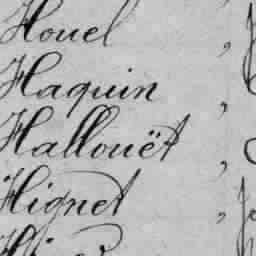 Houel ,
Haquin ,
Hallouët ,
Hignet ,